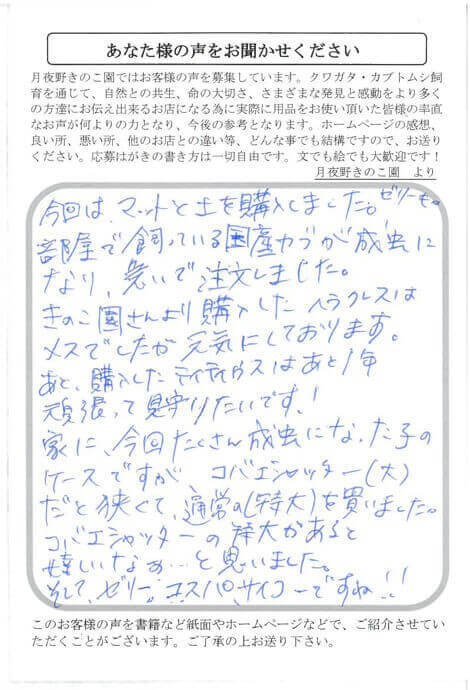 あなた様の声をお聞かせください
月夜野きのこ園ではお客様の声を募集しています。クワガタ・カブトムシ飼
育を通じて、自然との共生、命の大切さ、さまざまな発見と感動をより多く
の方達にお伝え出来るお店になる為に実際に用品をお使い頂いた皆様の率直
なお声が何よりの力となり、今後の参考となります。ホームページの感想、
良い所、悪い所、他のお店との違い等、どんな事でも結構ですので、お送り
ください。応募はがきの書き方は一切自由です。文でも絵でも大歓迎です！
月夜野きのこ園　より
今回は、マットと土を購入しました。ゼリーも。
部屋で飼っている国産カブが成虫に
なり、急いで注文しました。
きのこ園さんより購入したヘラクレスは
メスでしたが元気にしております。
あと、購入したティティウスはあと1年
頑張って見守りたいです！
家に、今回たくさん成虫になった子の
ケースですが、コバエシャッター(大)
だと狭くて、通常の(特大)を買いました。
コバエシャッターの特大があると
嬉しいなぁ…と思いました。
そして、ゼリー。コスパ、サイコーですね!!
このお客様の声を書籍など紙面やホームページなどで、ご紹介させてい
ただくことがございます。ご了承の上お送り下さい。